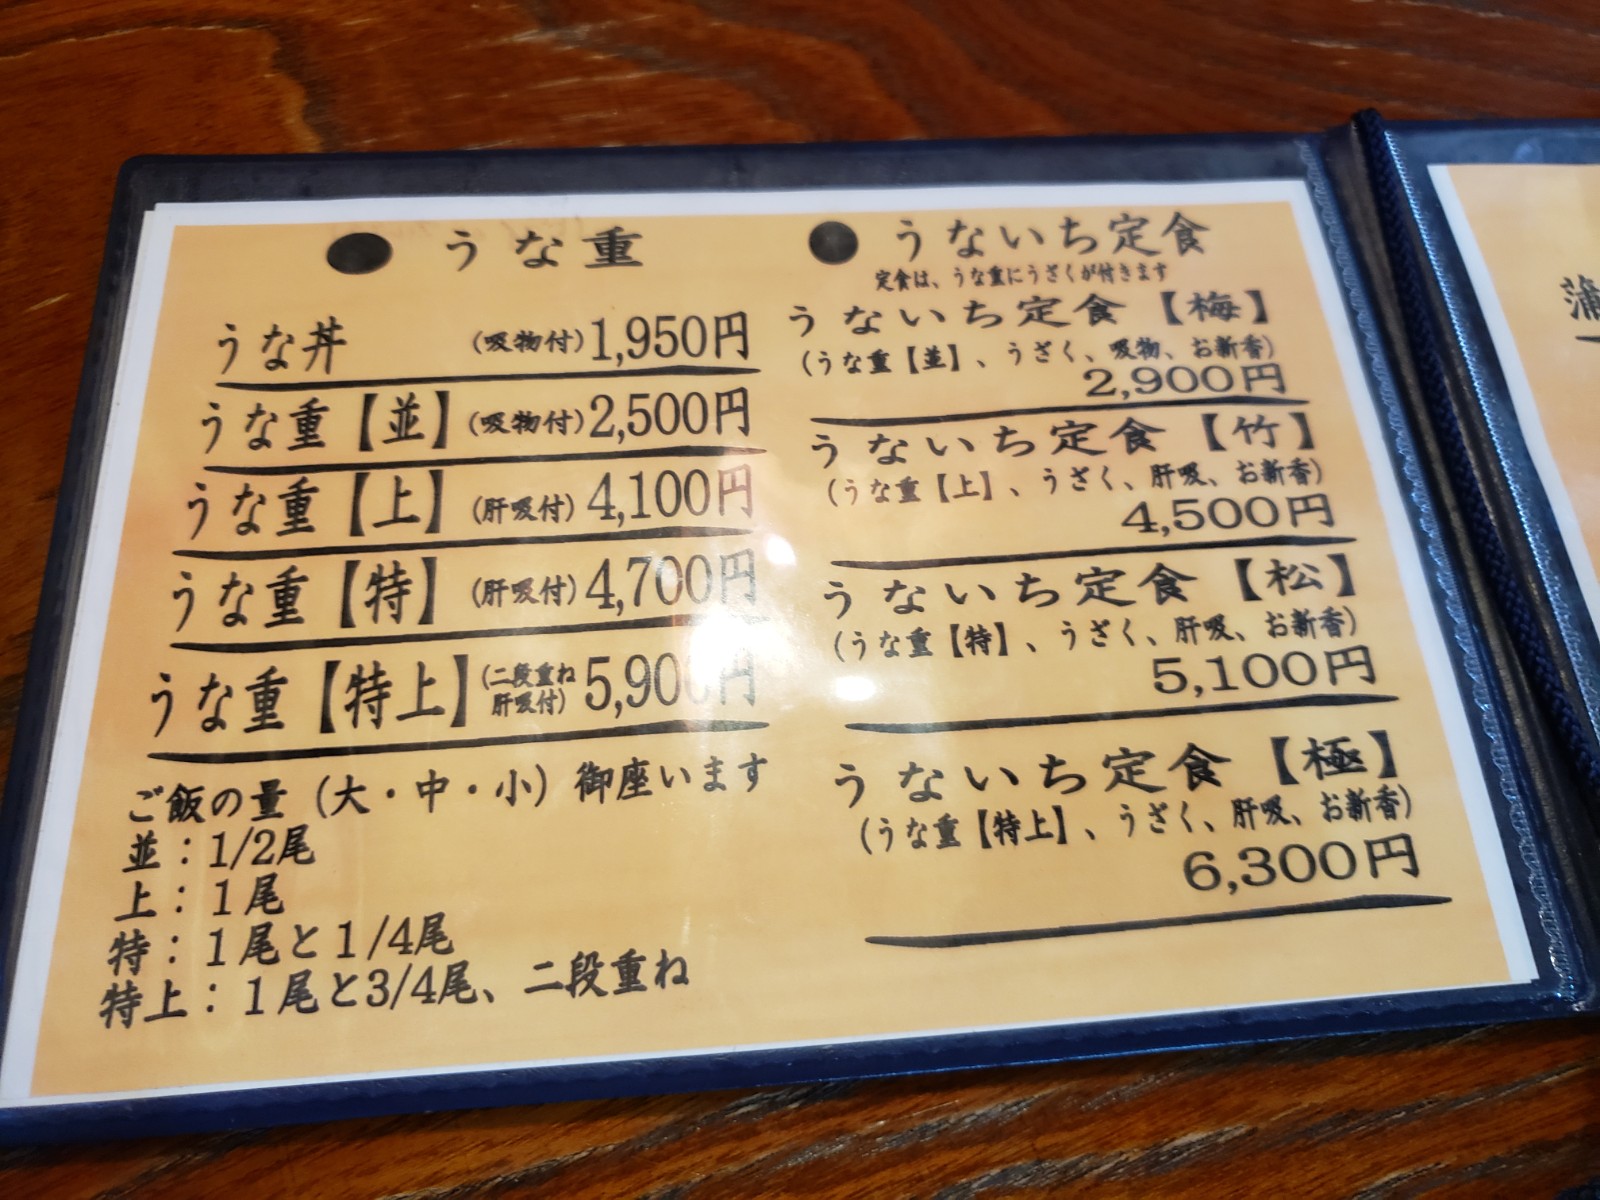 うな重
うな丼 (吸物付) 1,950円
うな重【並】 (吸物付) 2,500円
うな重【上】 (肝吸付) 4,100円
うな重【特】 (肝吸付) 4,700円
うな重【特上】 (二段重ね 肝吸付) 5,900円
ご飯の量(大・中・小)御座います
並:1/2尾
上:1尾
特:1尾と1/4尾
特上:1尾と3/4尾、二段重ね
うないち定食
定食は、うな重にうざくが付きます
うないち定食【梅】
(うな重【並】、うざく、吸物、お新香)
2,900円
うないち定食【竹】
(うな重【上】、うざく、肝吸、お新香)
4,500円
うないち定食【松】
(うな重【特】、うざく、肝吸、お新香)
5,100円
うないち定食【極】
(うな重【特上】、うざく、肝吸、お新香)
6,300円
蒲